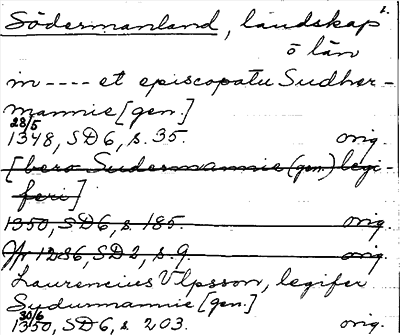 Södermanland, landskap 1.
o län
in ---- et episcopatu Sudher-
mannie [gen.]
28/5
1348, SD6, s. 35. orig.
[bero Sudermannie (gen.) legi-
feri]
1350, SD6, s. 185. orig.
Jfr 1286, SD2, s. 9. orig.
Laurencius Vlpsson, legifer
Sudurmannie [gen.]
30/6
1350, SD6, s. 203. orig.